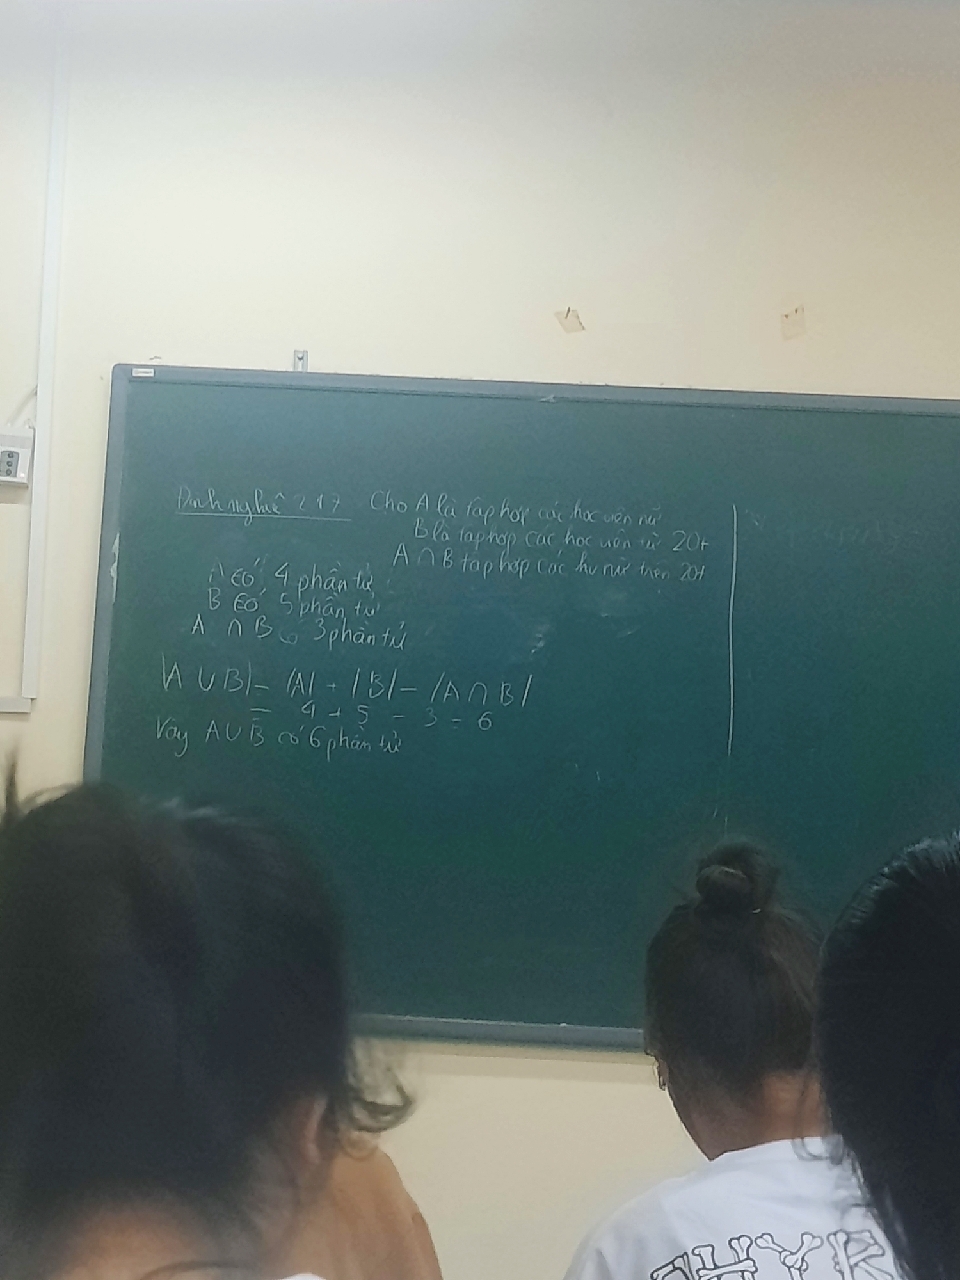 Định nghĩa 2.17 Cho A là tập hợp các học viên nữ
B là tập hợp các học viên từ 20t
A ∩ B tập hợp các hv nữ trên 20t
A có 4 phần tử
B có 5 phần tử
A ∩ B có 3 phần tử
|A ∪ B| = |A| + |B| - |A ∩ B|
= 4 + 5 - 3 = 6
Vậy A ∪ B có 6 phần tử